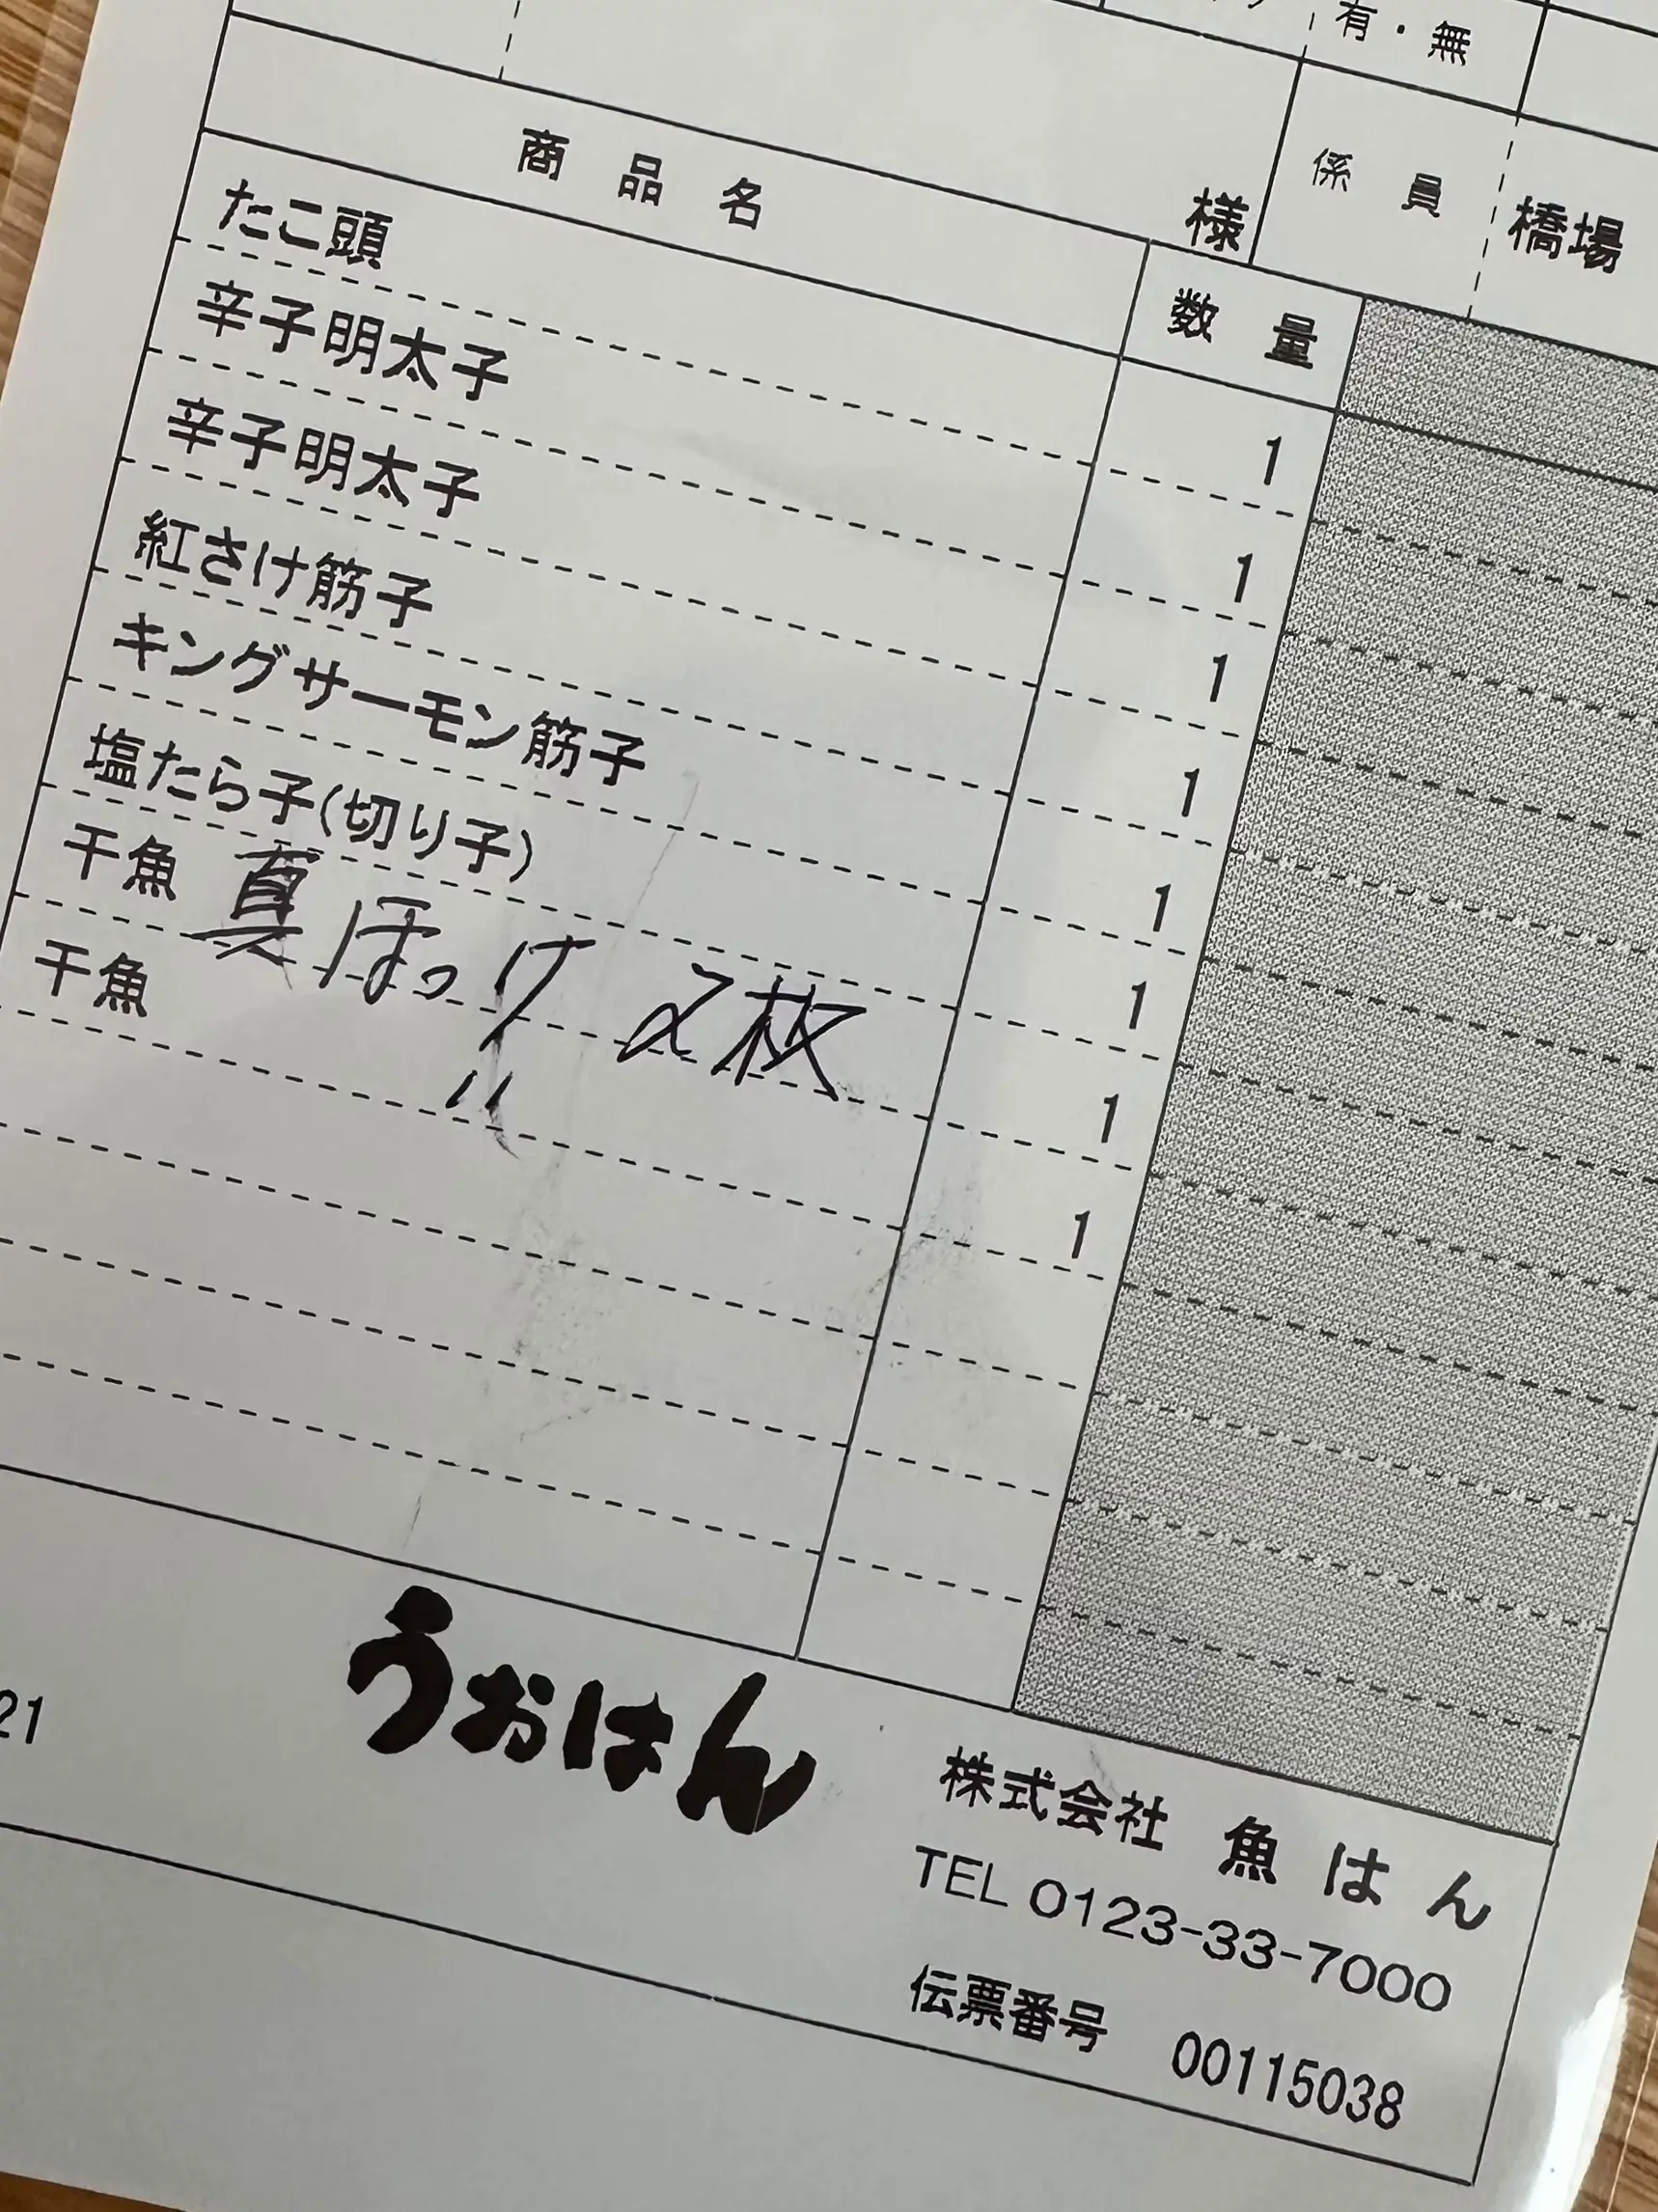 有・無
様 係員 橋場
商品名 数量
たこ頭 1
辛子明太子 1
辛子明太子 1
紅さけ筋子 1
キングサーモン筋子 1
塩たら子(切り子) 1
干魚 真ほっけ 2枚 1
干魚 〃 1
21
うおはん
株式会社 魚はん
TEL 0123-33-7000
伝票番号 00115038